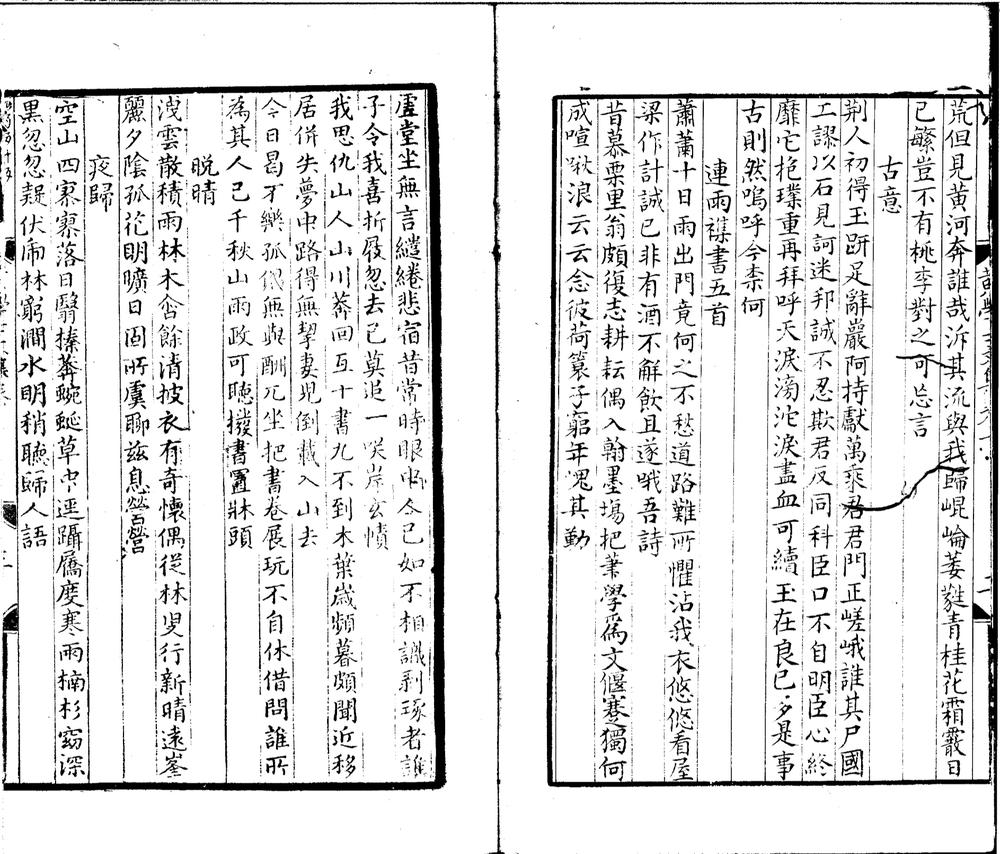 荒但見黃河奔誰哉泝其流與我歸崐崘萎蕤青桂花霜霰日
已繁豈不有桃李對之可忘言
古意
荆人初得玉趼足辭巖阿持獻萬乘君君門正嵯峨誰其尸國
工謬以石見訶迷邦誠不忍欺君反同科臣口不自明臣心終
靡它抱璞重再拜呼天淚滂沱淚盡血可續玉在良已多是事
古則然嗚呼今柰何
連雨襍書五首
蕭蕭十日雨出門竟何之不愁道路難所懼沾我衣悠悠看屋
梁作計誠已非有酒不解飲且遂哦吾詩
昔慕栗里翁頗復志耕耘偶入翰墨塲把筆學爲文偃蹇獨何
成喧啾浪云云念彼荷篠子窮年愧其勤
虗堂坐無言繾綣悲宿昔當時眼中人已如不相識剥琢者誰
子令我喜折屐忽去已莫追一咲岸玄幘
我思仇山人山川莽回互十書九不到木葉歲頻暮頗聞近移
居併失夢中路得無挈妻兒倒載入山去
今日曷不樂孤㑃無與酬兀坐把書卷展玩不自休借問誰所
為其人已千秋山雨政可聽撥書置牀頭
晚晴
洩雲散積雨林木含餘清披衣有奇懷偶從林叟行新晴遠峯
麗夕陰孤花明曠日固所虞聊兹息營營
夜歸
空山四寥寥落日翳榛莽蜿蜒草中逕躡屩度寒雨楠杉窈深
黒忽忽疑伏乕林窮澗水明稍聽歸人語